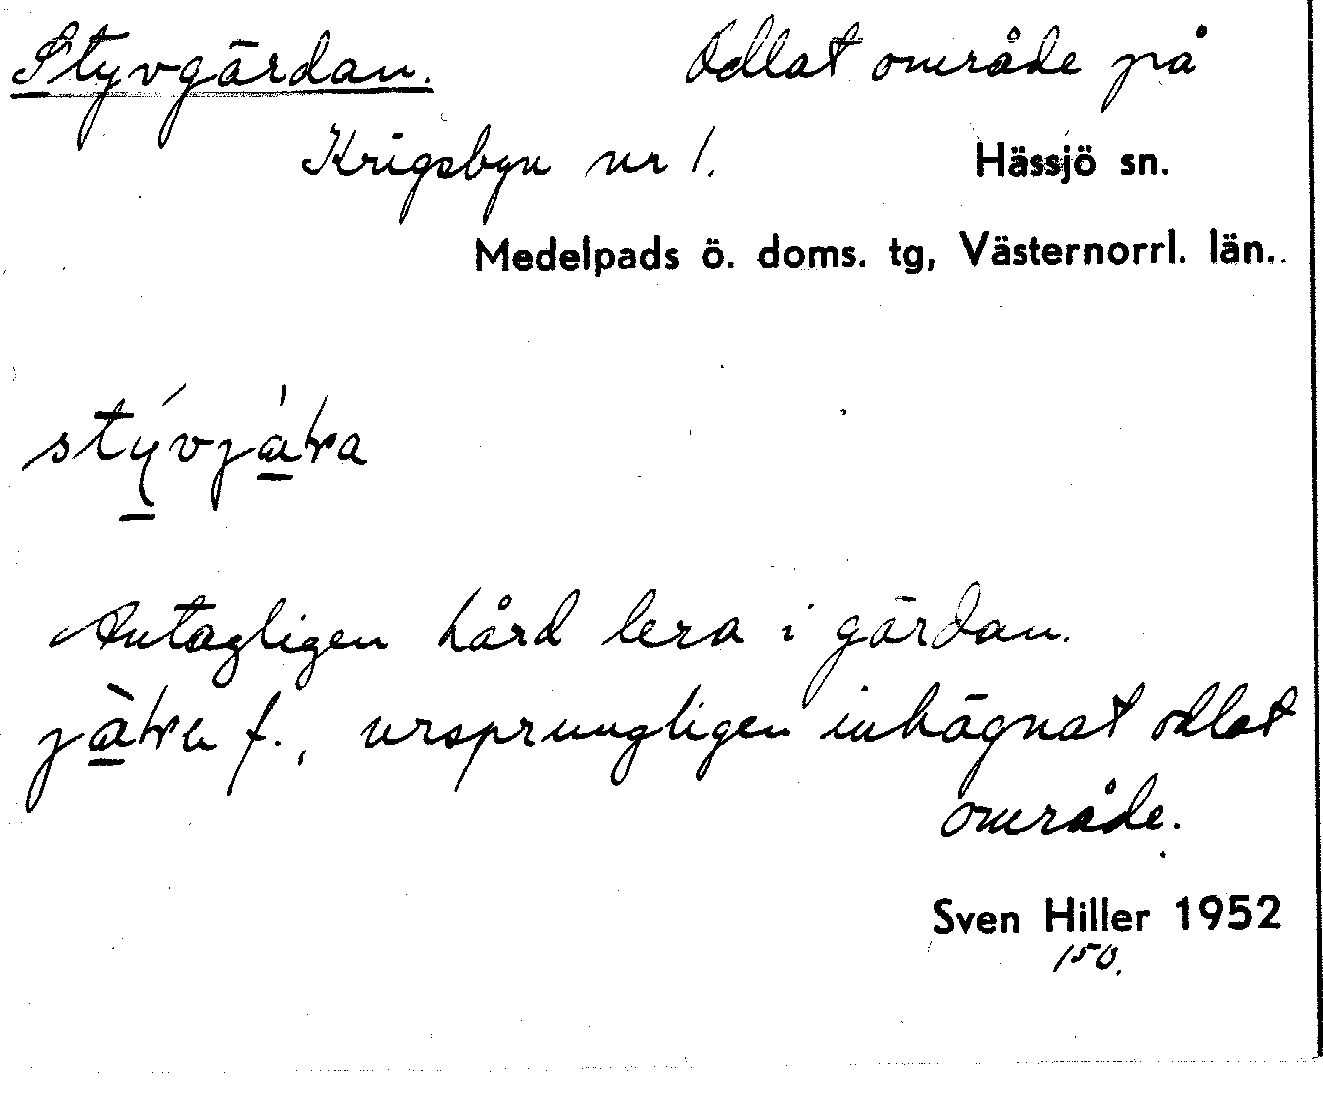 Styvgärdan. Odlat område på
Krigsbyn nr 1. Hässjö sn.
Medelpads ö. doms. tg, Västernorrl. län.
Antagligen hård lera i gärdan.
f., ursprungligen inhägnat odlat
område.
Sven Hiller 1952
150.